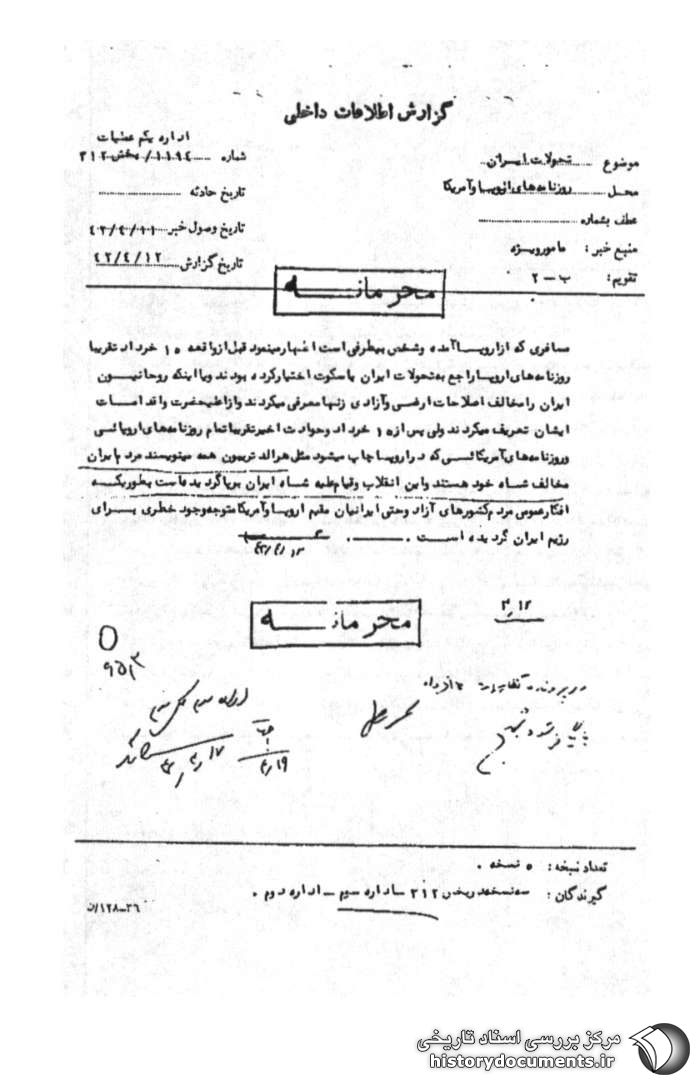 گزارش اطلاعات داخلی
اداره یکم عملیات
موضوع تحولات ایران
شماره ۱۱۹۴/بخش ۳۱۲
محل روزنامه‌های اروپا و آمریکا
تاریخ حادثه
عطف بشماره
تاریخ وصول خبر ۴۲/۴/۱۱
منبع خبر: مامور ویژه
تاریخ گزارش ۴۲/۴/۱۲
تقویم: ب-۲
محرمانه
مسافری که از اروپا آمده و شخص بیطرفی است اظهار مینمود قبل از واقعه ۱۵ خرداد تقریبا
روزنامه‌های اروپا راجع به تحولات ایران یا سکوت اختیار کرده بودند و یا اینکه روحانیون
ایران را مخالف اصلاحات ارضی و آزادی زنها معرفی میکردند و از اعلیحضرت و اقدامات
ایشان تعریف میکردند ولی پس از ۱۵ خرداد و حوادث اخیر تقریبا تمام روزنامه‌های اروپائی
و روزنامه‌های آمریکائی که در اروپا چاپ میشود مثل هرالد تریبون همه مینویسند مردم ایران
مخالف شاه خود هستند و این انقلاب و قیام علیه شاه ایران برپا گردیده است بطوریکه
افکار عمومی مردم کشورهای آزاد و حتی ایرانیان مقیم اروپا و آمریکا متوجه وجود خطری برای
رژیم ایران گردیده است.
۴۲/۴/۱۲
محرمانه
اداره سوم
۴/۱۹
تعداد نسخه: ۵ نسخه.
گیرندگان: سه نسخه در بخش ۳۱۲ - اداره سیم - اداره دوم.
۳۶-۱۲۸/ن
مرکز بررسی اسناد تاریخی
historydocuments.ir